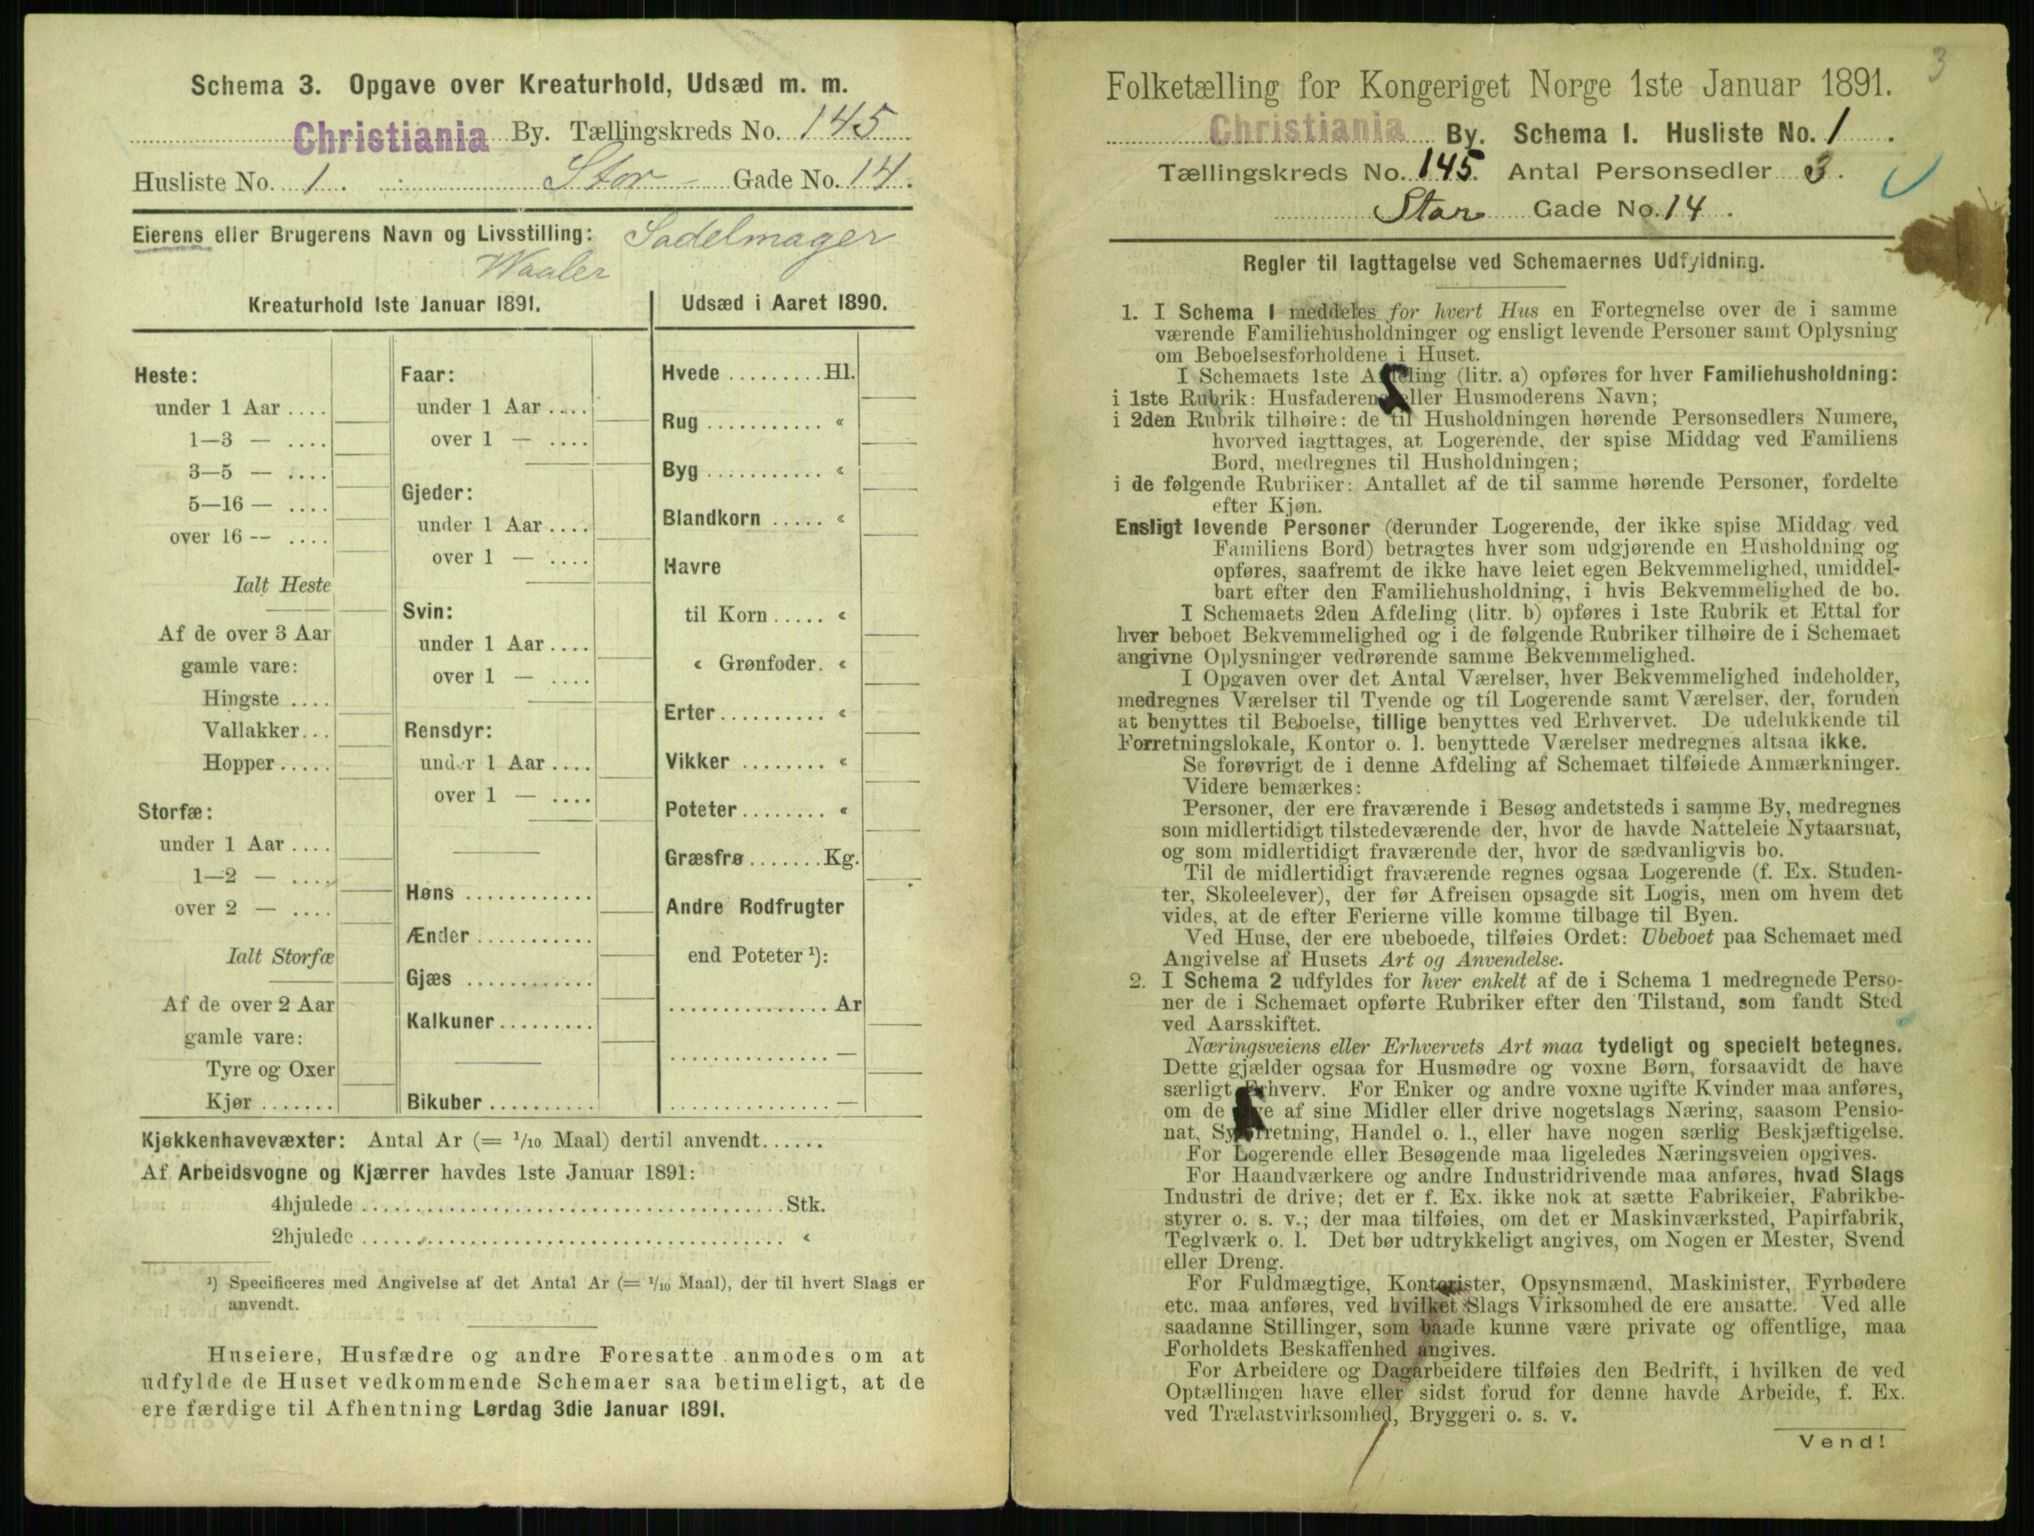 Schema 3. Opgave over Kreaturhold, Udsæd m. m.
Christiania By. Tællingskreds No. 145
Husliste No. 1. : Stor - Gade No. 14.
Eierens eller Brugerens Navn og Livsstilling: Sadelmager
Waaler
Kreaturhold 1ste Januar 1891.
Heste:
under 1 Aar ....
1—3 — ....
3—5 — ....
5—16 — ....
over 16 — ....
Ialt Heste
Af de over 3 Aar
gamle vare:
Hingste ....
Vallakker...
Hopper.....
Storfæ:
under 1 Aar ....
1—2 — ....
over 2 — ....
Ialt Storfæ
Af de over 2 Aar
gamle vare:
Tyre og Oxer
Kjør .......
Faar:
under 1 Aar ....
over 1 — ....
Gjeder:
under 1 Aar ....
over 1 — ....
Svin:
under 1 Aar ....
over 1 — ....
Rensdyr:
under 1 Aar ....
over 1 — ....
Høns ............
Ænder ...........
Gjæs ............
Kalkuner .........
Bikuber ..........
Udsæd i Aaret 1890.
Hvede .........Hl.
Rug ........... «
Byg ........... «
Blandkorn ..... «
Havre
til Korn ..... «
« Grønfoder. «
Erter.......... «
Vikker ........ «
Poteter........ «
Græsfrø .......Kg.
Andre Rodfrugter
end Poteter ¹):
............... Ar
............... —
............... —
Kjøkkenhavevæxter: Antal Ar (= 1/10 Maal) dertil anvendt......
Af Arbeidsvogne og Kjærrer havdes 1ste Januar 1891:
4hjulede ......................................Stk.
2hjulede ...................................... «
¹) Specificeres med Angivelse af det Antal Ar (= 1/10 Maal), der til hvert Slags er
anvendt.
Huseiere, Husfædre og andre Foresatte anmodes om at
udfylde de Huset vedkommende Schemaer saa betimeligt, at de
ere færdige til Afhentning Lørdag 3die Januar 1891.
3
Folketælling for Kongeriget Norge 1ste Januar 1891.
Christiania By. Schema 1. Husliste No. 1.
Tællingskreds No. 145. Antal Personsedler 3.
Stor Gade No. 14.
Regler til Iagttagelse ved Schemaernes Udfyldning.
1. I Schema 1 meddeles for hvert Hus en Fortegnelse over de i samme
værende Familiehusholdninger og ensligt levende Personer samt Oplysning
om Beboelsesforholdene i Huset.
I Schemaets 1ste Afdeling (litr. a) opføres for hver Familiehusholdning:
i 1ste Rubrik: Husfaderens eller Husmoderens Navn;
i 2den Rubrik tilhøire: de til Husholdningen hørende Personsedlers Numere,
hvorved iagttages, at Logerende, der spise Middag ved Familiens
Bord, medregnes til Husholdningen;
i de følgende Rubriker: Antallet af de til samme hørende Personer, fordelte
efter Kjøn.
Ensligt levende Personer (derunder Logerende, der ikke spise Middag ved
Familiens Bord) betragtes hver som udgjørende en Husholdning og
opføres, saafremt de ikke have leiet egen Bekvemmelighed, umiddel-
bart efter den Familiehusholdning, i hvis Bekvemmelighed de bo.
I Schemaets 2den Afdeling (litr. b) opføres i 1ste Rubrik et Ettal for
hver beboet Bekvemmelighed og i de følgende Rubriker tilhøire de i Schemaet
angivne Oplysninger vedrørende samme Bekvemmelighed.
I Opgaven over det Antal Værelser, hver Bekvemmelighed indeholder,
medregnes Værelser til Tyende og til Logerende samt Værelser, der, foruden
at benyttes til Beboelse, tillige benyttes ved Erhvervet. De udelukkende til
Forretningslokale, Kontor o. l. benyttede Værelser medregnes altsaa ikke.
Se forøvrigt de i denne Afdeling af Schemaet tilføiede Anmærkninger.
Videre bemærkes:
Personer, der ere fraværende i Besøg andetsteds i samme By, medregnes
som midlertidigt tilstedeværende der, hvor de havde Natteleie Nytaarsnat,
og som midlertidigt fraværende der, hvor de sædvanligvis bo.
Til de midlertidigt fraværende regnes ogsaa Logerende (f. Ex. Studen-
ter, Skoleelever), der før Afreisen opsagde sit Logis, men om hvem det
vides, at de efter Ferierne ville komme tilbage til Byen.
Ved Huse, der ere ubeboede, tilføies Ordet: Ubeboet paa Schemaet med
Angivelse af Husets Art og Anvendelse.
2. I Schema 2 udfyldes for hver enkelt af de i Schema 1 medregnede Perso-
ner de i Schemaet opførte Rubriker efter den Tilstand, som fandt Sted
ved Aarsskiftet.
Næringsveiens eller Erhvervets Art maa tydeligt og specielt betegnes.
Dette gjælder ogsaa for Husmødre og voxne Børn, forsaavidt de have
særligt Erhverv. For Enker og andre voxne ugifte Kvinder maa anføres,
om de leve af sine Midler eller drive nogetslags Næring, saasom Pensio-
nat, Syforretning, Handel o. l., eller have nogen særlig Beskjæftigelse.
For Logerende eller Besøgende maa ligeledes Næringsveien opgives.
For Haandværkere og andre Industridrivende maa anføres, hvad Slags
Industri de drive; det er f. Ex. ikke nok at sætte Fabrikeier, Fabrikbe-
styrer o. s. v.; der maa tilføies, om det er Maskinværksted, Papirfabrik,
Teglværk o. l. Det bør udtrykkeligt angives, om Nogen er Mester, Svend
eller Dreng.
For Fuldmægtige, Kontorister, Opsynsmænd, Maskinister, Fyrbødere
etc. maa anføres, ved hvilket Slags Virksomhed de ere ansatte. Ved alle
saadanne Stillinger, som baade kunne være private og offentlige, maa
Forholdets Beskaffenhed angives.
For Arbeidere og Dagarbeidere tilføies den Bedrift, i hvilken de ved
Optællingen have eller sidst forud for denne havde Arbeide, f. Ex.
ved Trælastvirksomhed, Bryggeri o. s. v.
Vend!